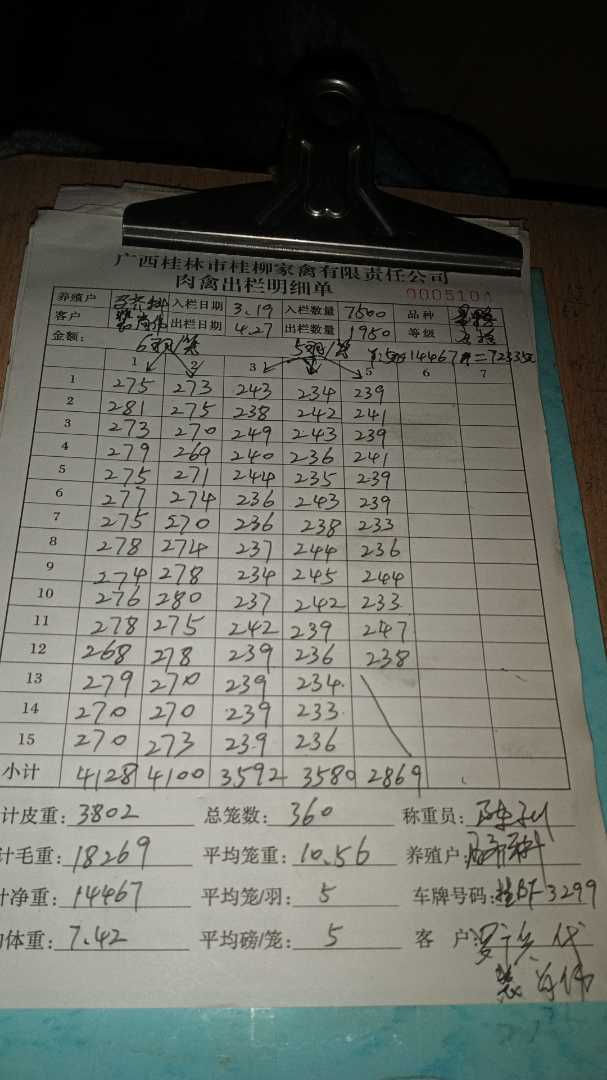 广西桂林市桂柳家禽有限责任公司
肉禽出栏明细单
0005104
养殖户 入栏日期 3.19 入栏数量 7500 品种
客户 出栏日期 4.27 出栏数量 1950 等级
金额: 14467
1 2 3 5 6 7
1 275 273 243 234 239
2 281 275 238 242 241
3 273 270 249 243 239
4 279 269 240 236 241
5 275 271 244 235 239
6 277 274 236 243 239
7 275 270 236 238 233
8 278 274 237 244 236
9 274 278 234 245 244
10 276 280 237 242 233
11 278 275 242 239 247
12 268 278 239 236 238
13 279 270 239 234
14 270 270 239 233
15 270 273 239 236
小计 4128 4100 3592 3580 2869
计皮重: 3802 总笼数: 360 称重员:
计毛重: 18269 平均笼重: 10.56 养殖户:
计净重: 14467 平均笼/羽: 5 车牌号码: 桂BF-3299
均体重: 7.42 平均磅/笼: 5 客 户: